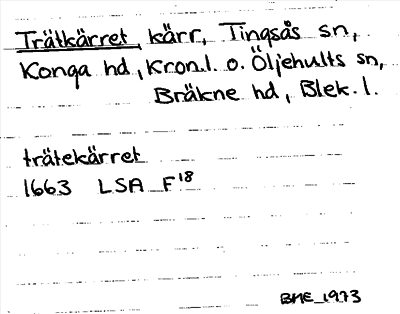 Trätkärret, kärr, Tingsås sn,
Konga hd, Kron.l. o. Öljehults sn,
Bräkne hd, Blek. l.
trätekärret
1663 LSA F18
BME 1973